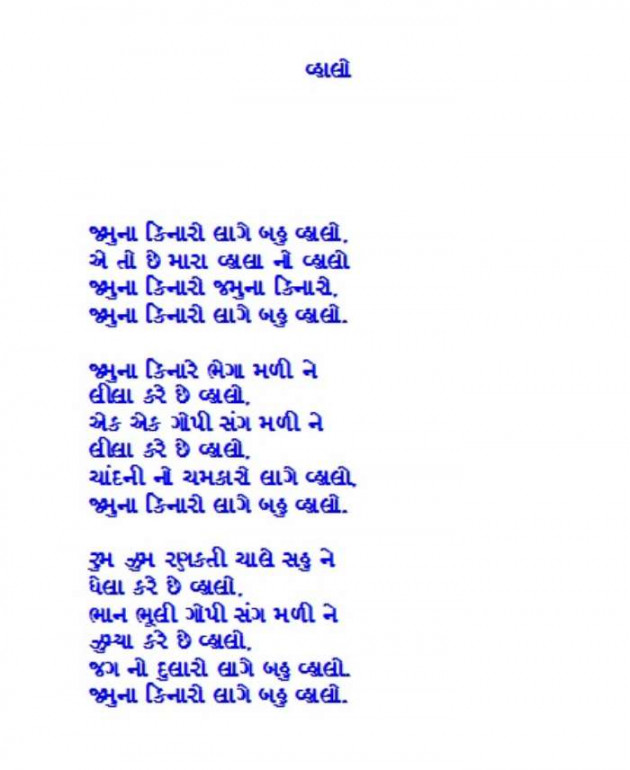 વ્હાલો
જમુના કિનારો લાગે બહુ વ્હાલો,
એ તો છે મારા વ્હાલા નો વ્હાલો
જમુના કિનારો જમુના કિનારો,
જમુના કિનારો લાગે બહુ વ્હાલો.
જમુના કિનારે ભેગા મળી ને
લીલા કરે છે વ્હાલો,
એક એક ગોપી સંગ મળી ને
લીલા કરે છે વ્હાલો,
ચાંદની નો ચમકારો લાગે વ્હાલો,
જમુના કિનારો લાગે બહુ વ્હાલો.
રુમ ઝુમ રણકતી ચાલે સહુ ને
ઘેલા કરે છે વ્હાલો,
ભાન ભૂલી ગોપી સંગ મળી ને
ઝુમ્યા કરે છે વ્હાલો,
જગ નો દુલારો લાગે બહુ વ્હાલો.
જમુના કિનારો લાગે બહુ વ્હાલો.